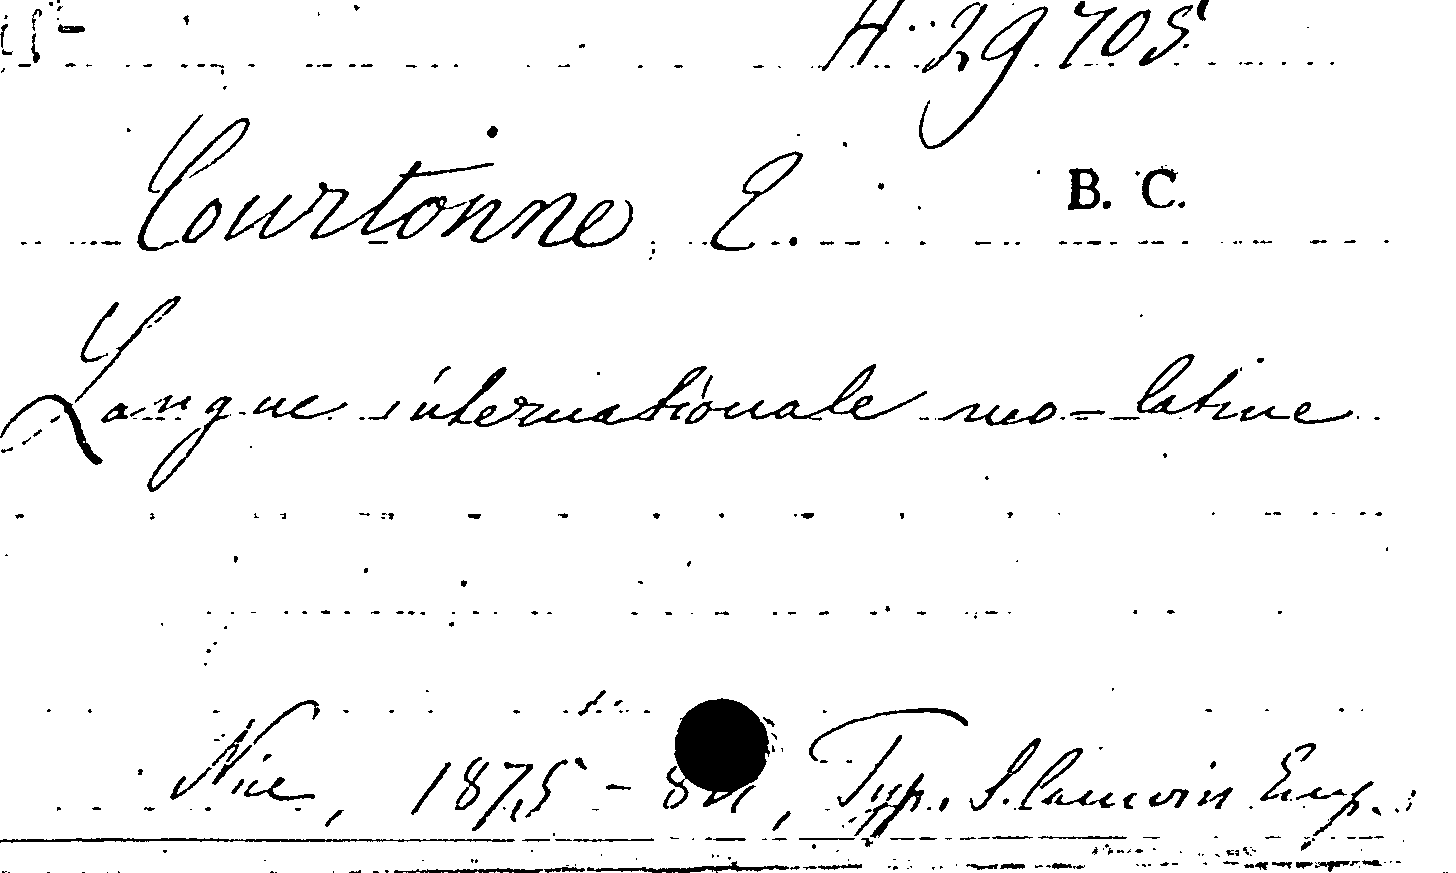 H. 29705
Courtonne, E. B. C.
Langue internationale neo-latine
Nice, 1875-84, Typ. S. Cauvin Emp.